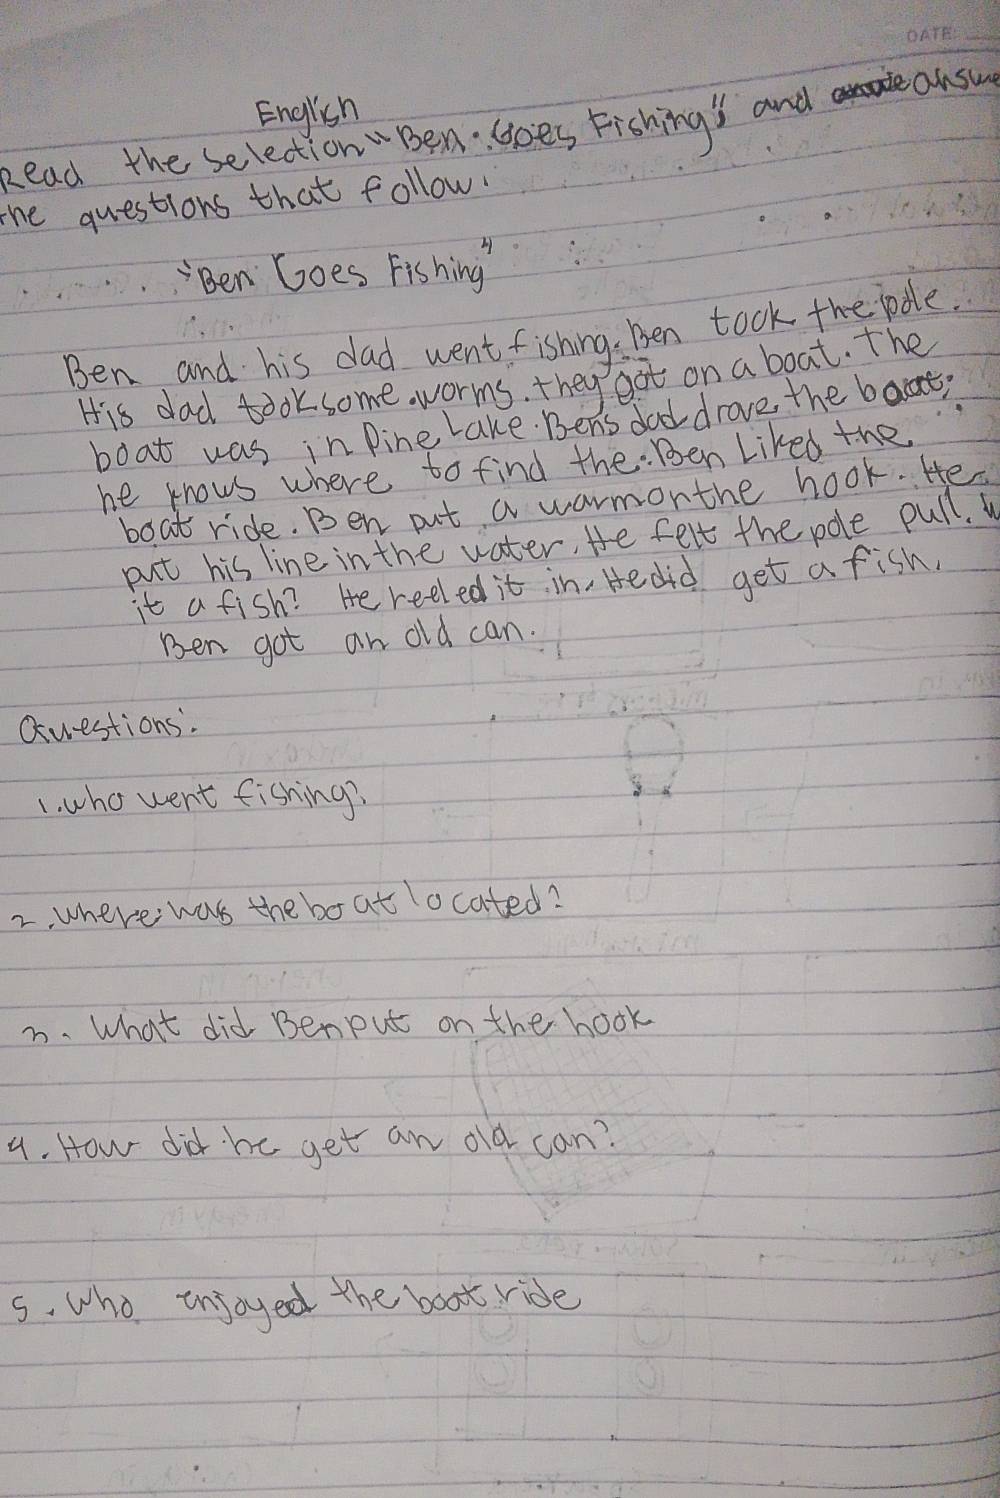 DATE:
English
Read the selection "Ben Goes Fishing" and answe
the questions that follow.
"Ben Goes Fishing"
Ben and his dad went fishing. Ben took the pole.
His dad took some worms. they got on a boat. The
boat was in Pine Lake. Ben's dad drove the boat.
he knows where to find the. Ben Liked the
boat ride. Ben put a warm on the hook. He
put his line in the water. He felt the pole pull. W
it a fish? He reeled it in. He did get a fish.
Ben got an old can.
Questions:
1. who went fishing?
2. where was the boat located?
3. What did Ben put on the hook
4. How did he get an old can?
5. Who enjoyed the boat ride